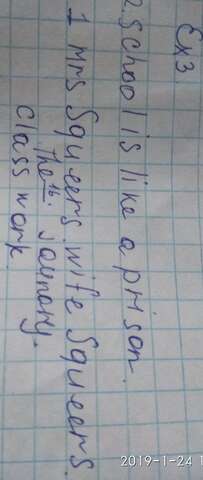 Ex3
2 School is like a prison.
1 Mrs Squeers wife Squeers.
The Jaunary.
class work.
2019-1-24